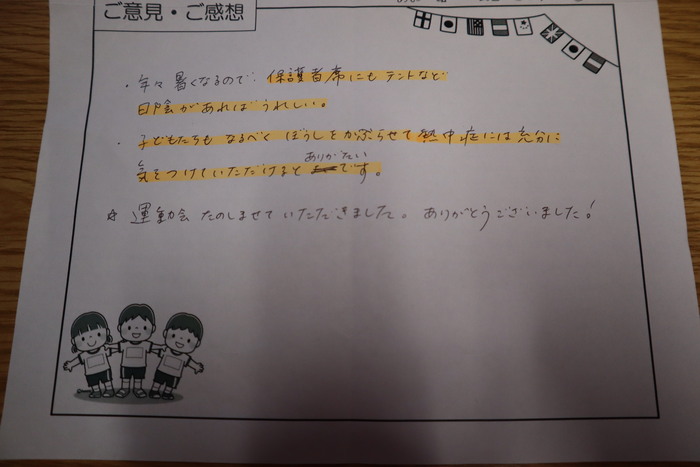 ご意見・ご感想
・年々暑くなるので、保護者席にもテントなど
日陰があればうれしい。
・子どもたちも なるべく ぼうしをかぶらせて 熱中症には充分に
気をつけていただけると ありがたいです。
☆ 運動会 たのしませて いただきました。 ありがとうございました!